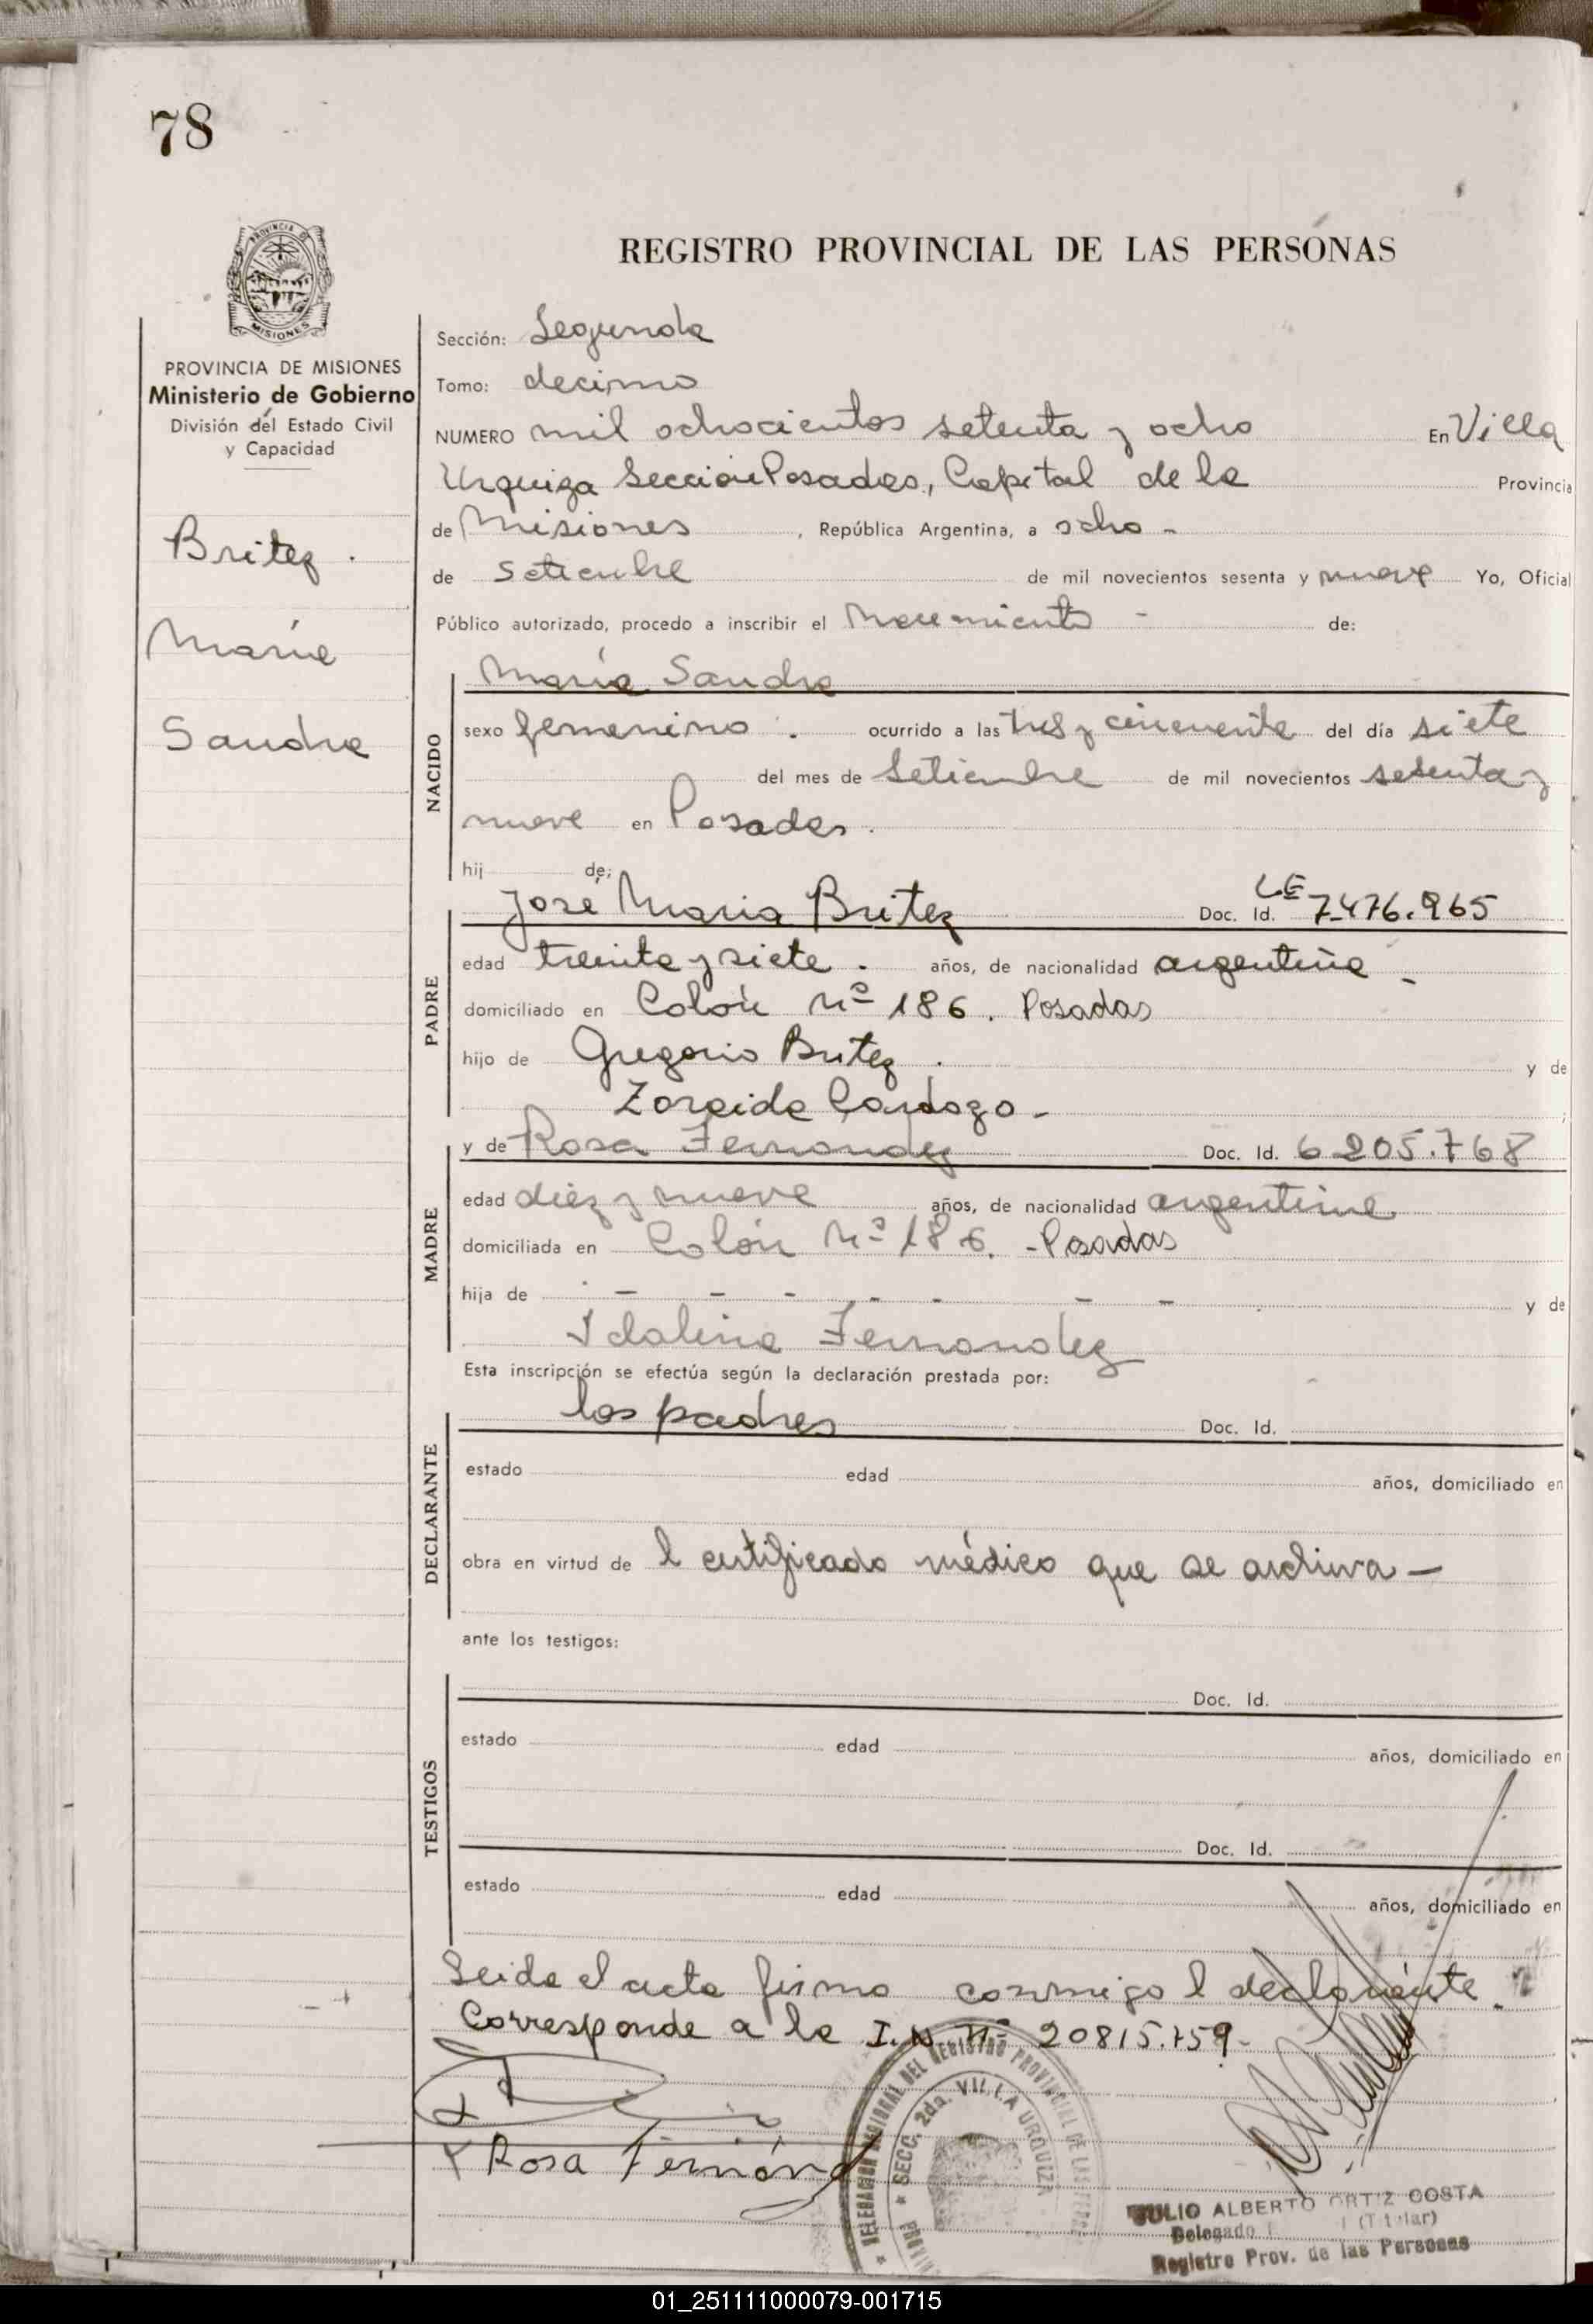 78
REGISTRO PROVINCIAL DE LAS PERSONAS
PROVINCIA DE MISIONES
MISIONES
PROVINCIA DE MISIONES
Ministerio de Gobierno
División del Estado Civil
y Capacidad
Britez.
María
Sandra
Sección: Segunda
Tomo: decimo
NUMERO mil ochocientos setenta y ocho En Villa
Urquiza Sección Posadas, Capital de la Provincia
de Misiones, República Argentina, a ocho -
de Setiembre de mil novecientos sesenta y nueve Yo, Oficial
Público autorizado, procedo a inscribir el Nacimiento - de:
NACIDO
María Sandra
sexo femenino. ocurrido a las tres y cincuenta del día siete
del mes de Setiembre de mil novecientos sesenta y
nueve en Posadas.
hij de:
PADRE
José Maria Britez Doc. Id. LE 7.476.965
edad treinta y siete. años, de nacionalidad argentina -
domiciliado en Colón Nº 186. Posadas
hijo de Gregorio Britez. y de
Zoraida Cardozo - ;
MADRE
y de Rosa Fernandez Doc. Id. 6.205.768
edad diez y nueve años, de nacionalidad argentina
domiciliada en Colón Nº 186. - Posadas
hija de - - - - - - - y de
Idalina Fernandez
Esta inscripción se efectúa según la declaración prestada por:
DECLARANTE
los padres Doc. Id.
estado edad años, domiciliado en
obra en virtud de l certificado médico que se archiva -
ante los testigos:
TESTIGOS
Doc. Id.
estado edad años, domiciliado en
Doc. Id.
estado edad años, domiciliado en
Leida el acta firma conmigo l declarante.
Corresponde a la I.N. Nº 20815.759-
x Rosa Fernánd
DELEGACION REGIONAL DEL REGISTRO PROVINCIAL DE LAS
SECC. 2da. VILLA URQUIZA
JULIO ALBERTO ORTIZ COSTA
Delegado (Titular)
Registro Prov. de las Personas
01_251111000079-001715